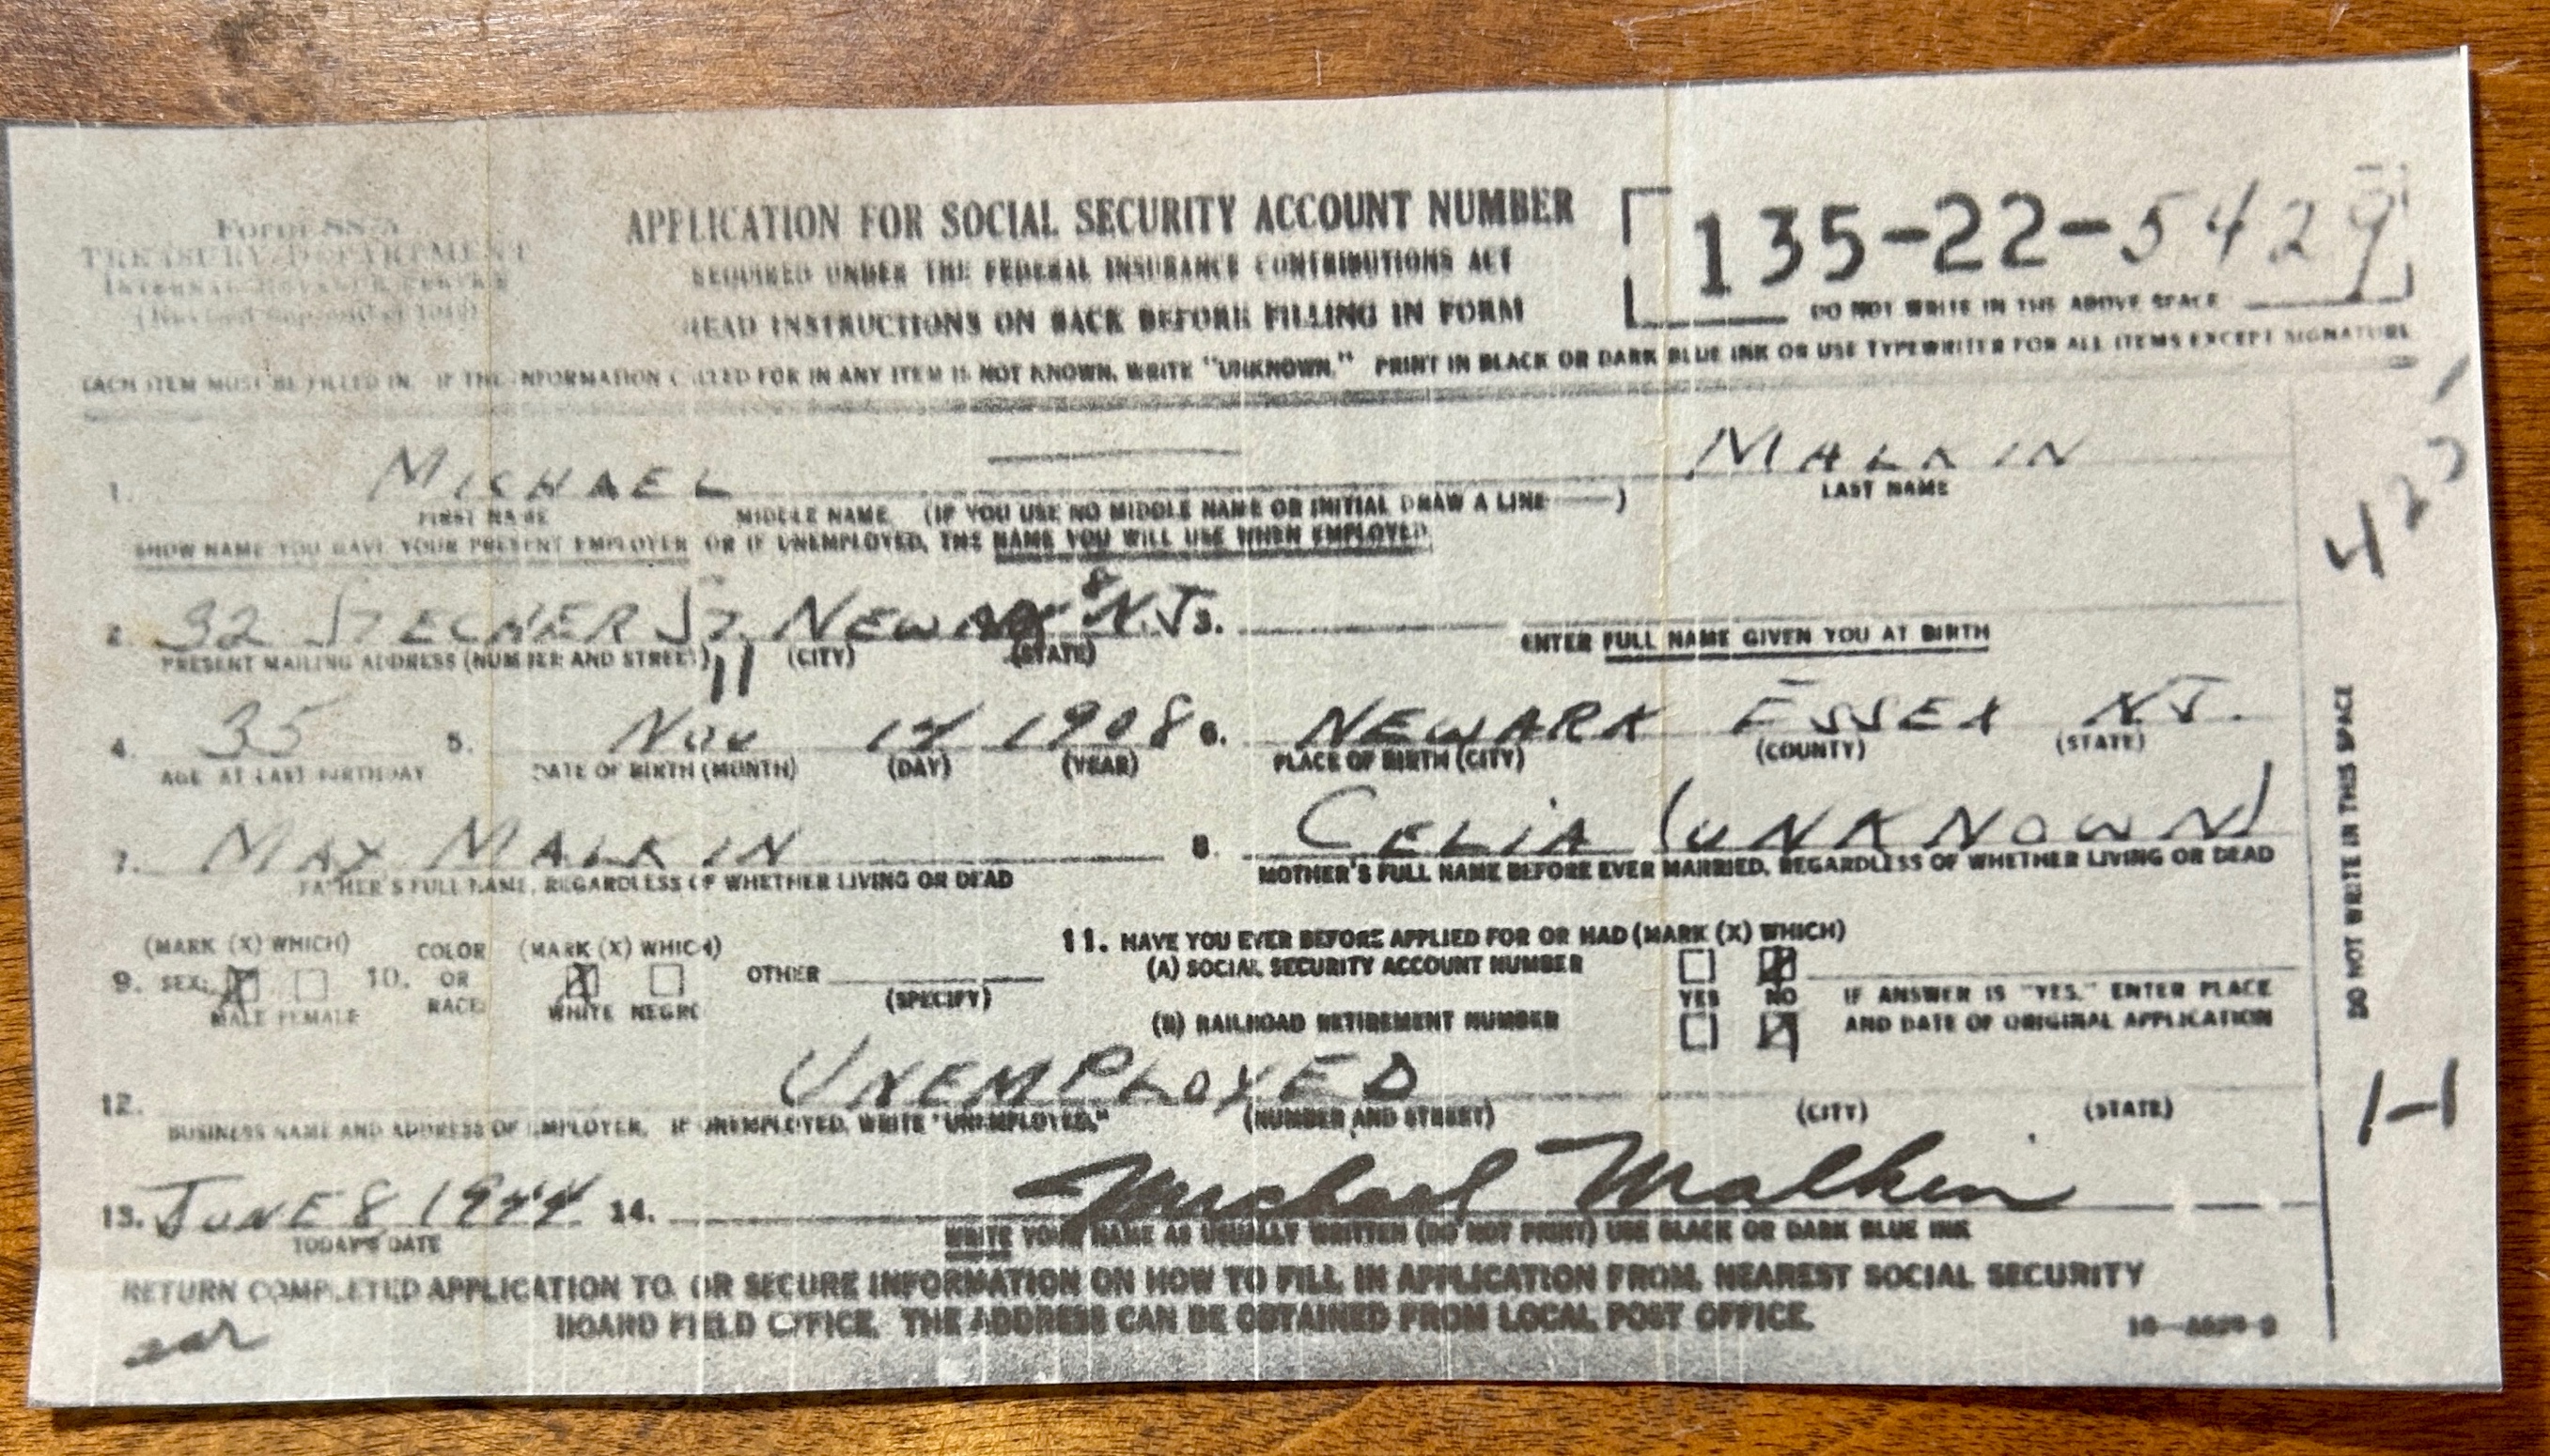 Form SS-5
TREASURY DEPARTMENT
INTERNAL REVENUE SERVICE
APPLICATION FOR SOCIAL SECURITY ACCOUNT NUMBER
REQUIRED UNDER THE FEDERAL INSURANCE CONTRIBUTIONS ACT
READ INSTRUCTIONS ON BACK BEFORE FILLING IN FORM
135-22-5429
DO NOT WRITE IN THE ABOVE SPACE
EACH ITEM MUST BE FILLED IN. IF THE INFORMATION CALLED FOR IN ANY ITEM IS NOT KNOWN, WRITE "UNKNOWN." PRINT IN BLACK OR DARK BLUE INK OR USE TYPEWRITER FOR ALL ITEMS EXCEPT SIGNATURE
1. MICHAEL ——— MALKIN
FIRST NAME MIDDLE NAME (IF YOU USE NO MIDDLE NAME OR INITIAL DRAW A LINE ——) LAST NAME
SHOW NAME YOU GAVE YOUR PRESENT EMPLOYER OR IF UNEMPLOYED, THE NAME YOU WILL USE WHEN EMPLOYED
2. 32 STECHER ST. NEWARK 8 N.J. 3.
PRESENT MAILING ADDRESS (NUMBER AND STREET) (CITY) (STATE) ENTER FULL NAME GIVEN YOU AT BIRTH
11
4. 35 5. NOV 14 1908 6. NEWARK ESSEX N.J.
AGE AT LAST BIRTHDAY DATE OF BIRTH (MONTH) (DAY) (YEAR) PLACE OF BIRTH (CITY) (COUNTY) (STATE)
7. MAX MALKIN 8. CELIA (UNKNOWN)
FATHER'S FULL NAME, REGARDLESS OF WHETHER LIVING OR DEAD MOTHER'S FULL NAME BEFORE EVER MARRIED, REGARDLESS OF WHETHER LIVING OR DEAD
(MARK (X) WHICH) COLOR (MARK (X) WHICH) 11. HAVE YOU EVER BEFORE APPLIED FOR OR HAD (MARK (X) WHICH)
9. SEX: X 10. OR X OTHER (A) SOCIAL SECURITY ACCOUNT NUMBER X
MALE FEMALE RACE: WHITE NEGRO (SPECIFY) YES NO IF ANSWER IS "YES," ENTER PLACE
(B) RAILROAD RETIREMENT NUMBER X AND DATE OF ORIGINAL APPLICATION
12. UNEMPLOYED
BUSINESS NAME AND ADDRESS OF EMPLOYER. IF UNEMPLOYED, WRITE "UNEMPLOYED," (NUMBER AND STREET) (CITY) (STATE)
13. JUNE 8, 1944 14. Michael Malkin
TODAY'S DATE WRITE YOUR NAME AS USUALLY WRITTEN (DO NOT PRINT) USE BLACK OR DARK BLUE INK
RETURN COMPLETED APPLICATION TO, OR SECURE INFORMATION ON HOW TO FILL IN APPLICATION FROM, NEAREST SOCIAL SECURITY
BOARD FIELD OFFICE. THE ADDRESS CAN BE OBTAINED FROM LOCAL POST OFFICE.
DO NOT WRITE IN THIS SPACE
1-1